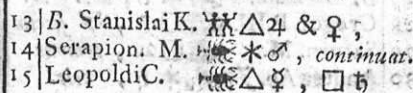 13 B. Stanislai K. ♊ △ ♃ & ♀ ,
14 Serapion. M. ✶ ♂ , continuat.
15 Leopoldi C. △ ☿ , □ ♄